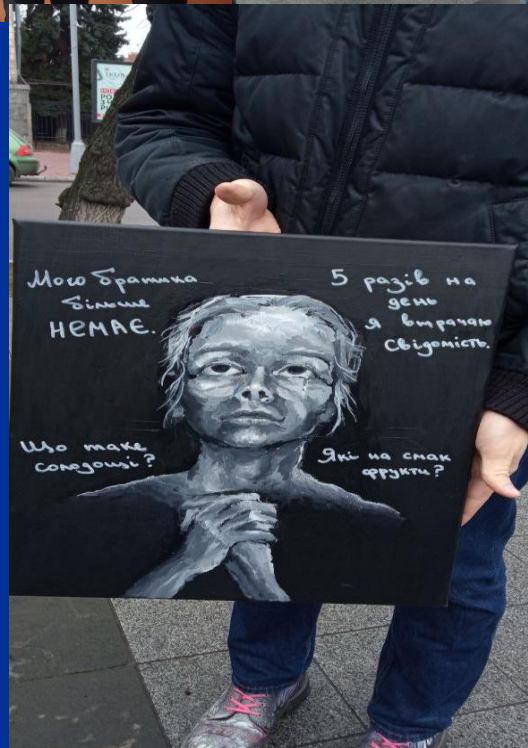 Мого братика
більше
НЕМАЄ.
5 разів на
день
я втрачаю
Свідомість.
Що таке
солодощі?
Які на смак
фрукти?